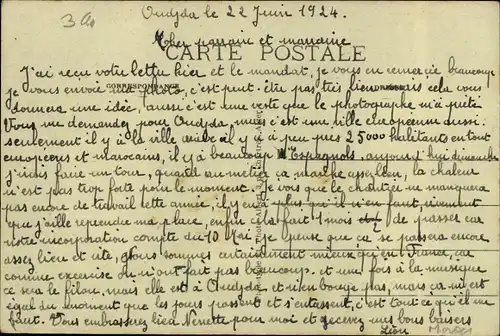 3a
Oudjda le 22 Juin 1924.
Cher parrain et marraine
CARTE POSTALE
J'ai reçu votre lettre hier et le mandat, je vous en remercie beaucoup
CORRESPONDANCE
je vous envoie ma photo, c'est peut-être pas très bien mais cela vous
donnera une idée, aussi c'est une veste que le photographe m'a prêté
Vous me demandez pour Oudjda, mais c'est une ville européenne aussi.
seulement il y à la ville arabe il y à à peu près 25000 habitants en tout
européens et marocains, il y à beaucoup d'Espagnols. aujourd'hui dimanche
j'irais faire un tour, quand au métier ça marche assez bien, la chaleur
n'est pas trop forte pour le moment. Je vois que le chantier ne manquera
pas encore de travail cette année, il y en a plus qu'il n'en faut, vivement
que j'aille reprendre ma place, enfin c'est fait 1 mois de passer car
notre incorporation compte du 10 Mai, je pense que ça se passera encore
assez bien et vite, nous sommes certainement mieux qu'en France, car
comme exercise on n'en fait pas beaucoup. et une fois à la musique
ce sera le filon, mais elle est à Oudjda et n'en bouge pas, mais ça m'est
égal du moment que les jours passent et s'entassent, c'est tout ce qu'il en
faut. Vous embrasserez bien Nénette pour moi et recevez mes bons baisers
Léon